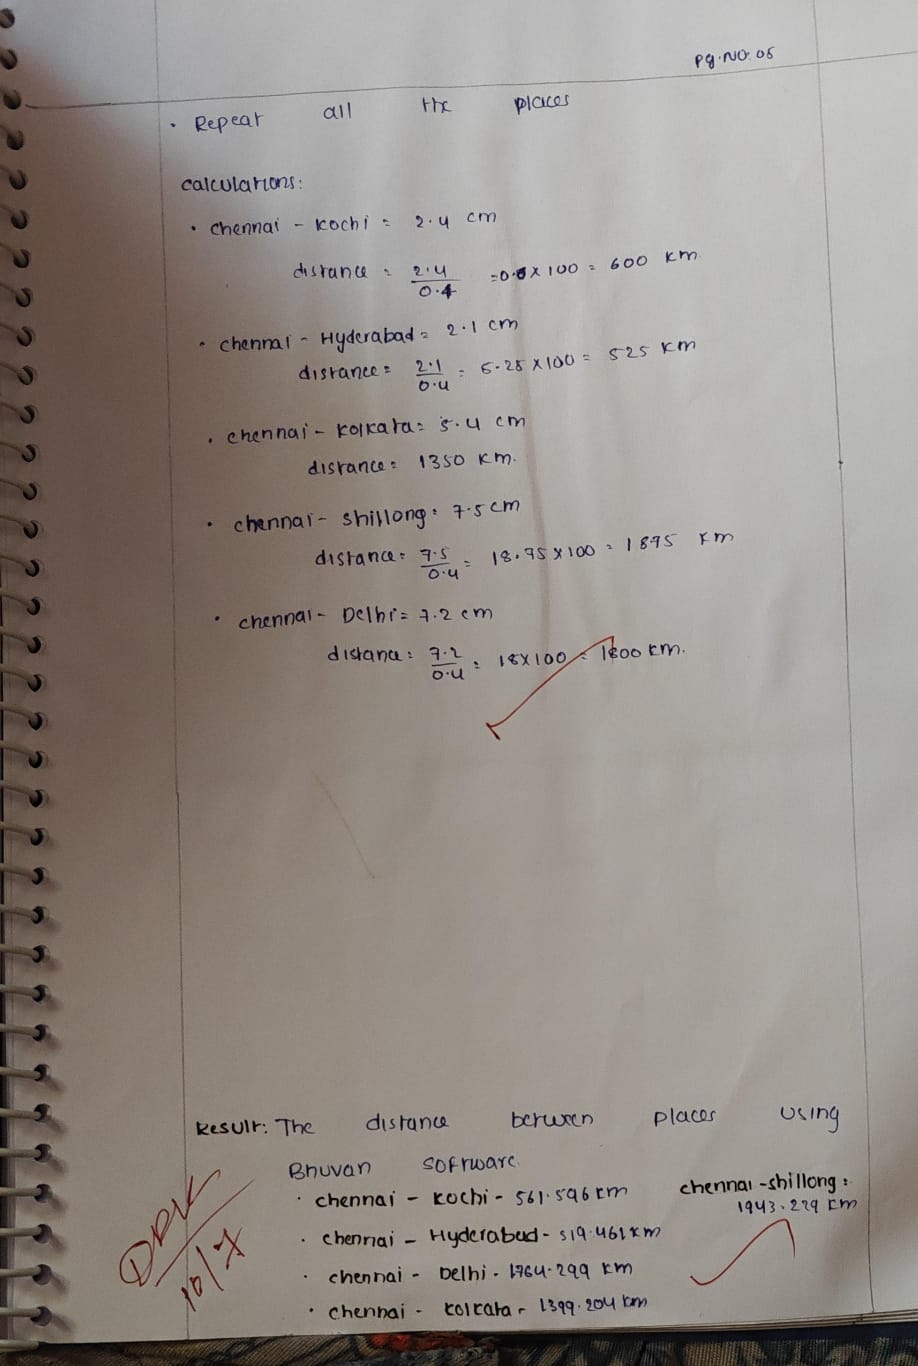 Pg.NO: 05
• Repeat all the places
calculations:
• chennai - kochi = 2.4 cm
distance = 2.4/0.4 = 0.6 x 100 = 600 km.
• chennai - Hyderabad = 2.1 cm
distance = 2.1/0.4 = 5.25 x 100 = 525 km
• chennai - kolkata = 5.4 cm
distance = 1350 km.
• chennai - shillong = 7.5 cm
distance = 7.5/0.4 = 18.75 x 100 = 1875 km
• chennai - Delhi = 7.2 cm
distance = 7.2/0.4 = 18 x 100 = 1800 km.
Result: The distance between places using
Bhuvan software.
• chennai - kochi - 561.596 km
chennai - shillong =
1943.229 km
• chennai - Hyderabad - 519.461 km
• chennai - Delhi - 1764.299 km
• chennai - kolkata - 1399.204 km
10/7